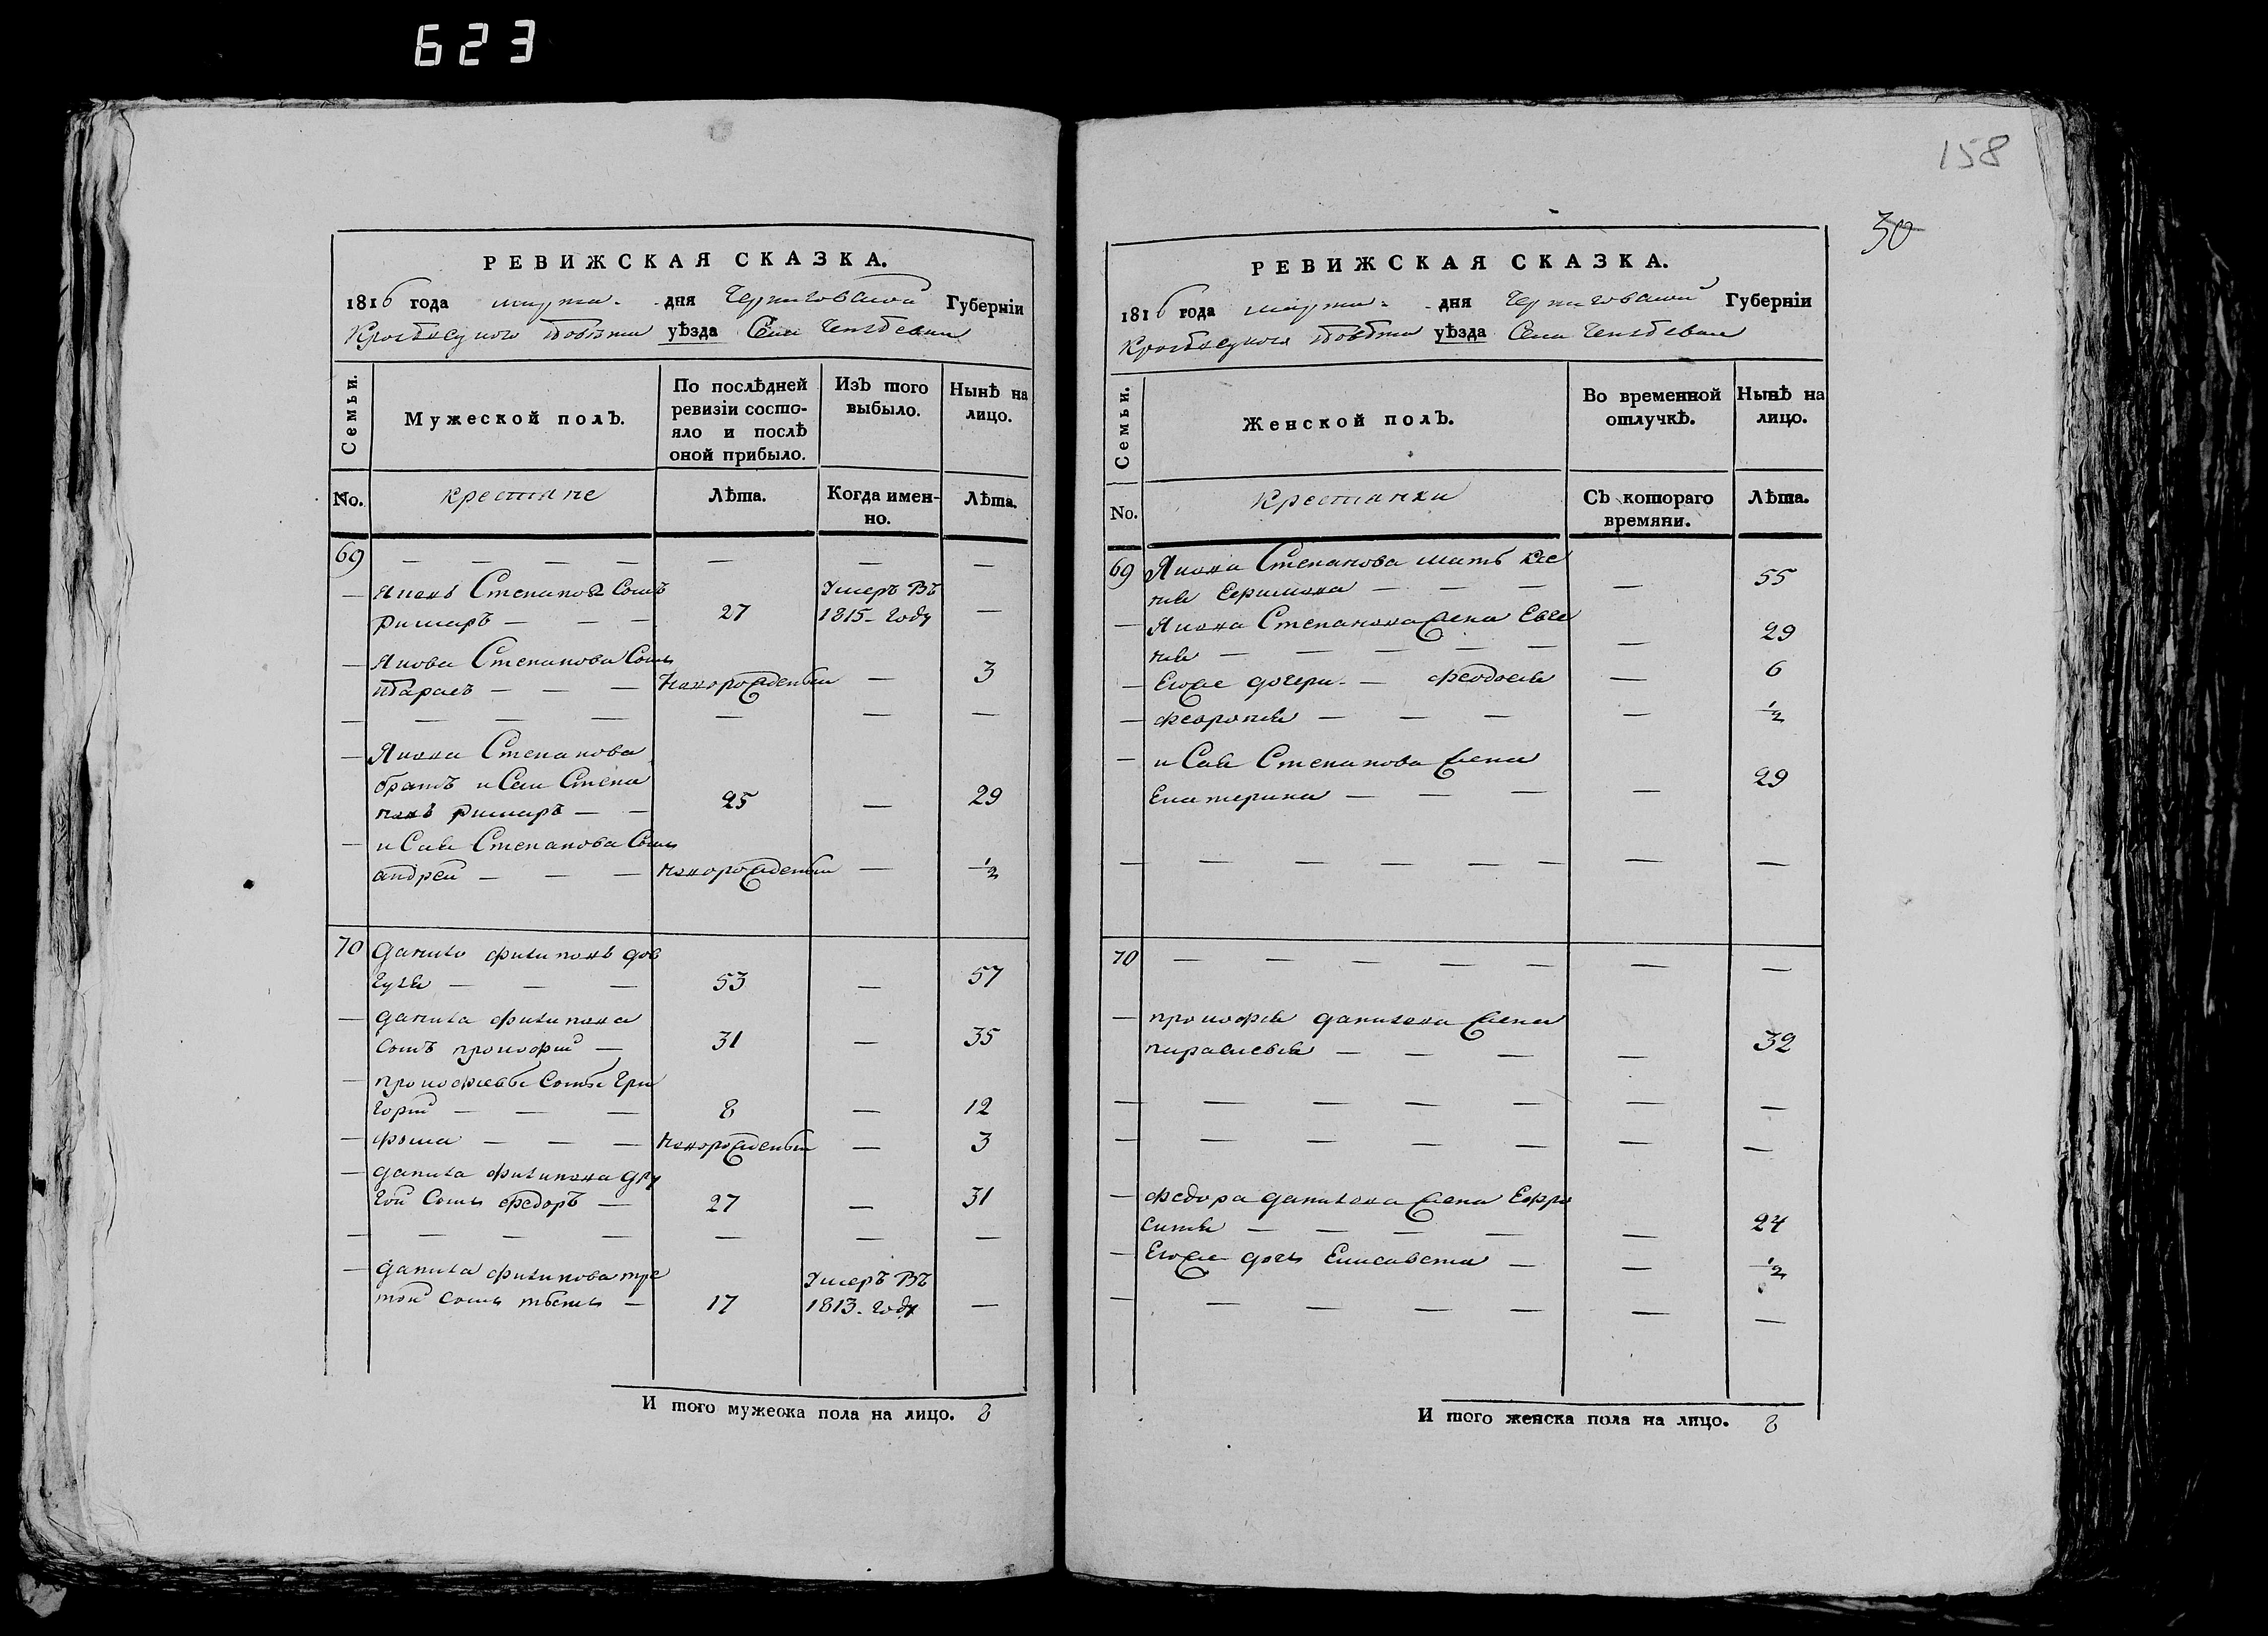 623
158
30
РЕВИЖСКАЯ СКАЗКА.
1816 года марта дня Черниговской Губерніи
Кролевецкого повѣта уѣзда Села
Семьи.
Мужеской полъ.
По послѣдней
ревизіи состо-
яло и послѣ
оной прибыло.
Изъ того
выбыло.
Нынѣ на
лицо.
No.
крестяне
Лѣта.
Когда имен-
но.
Лѣта.
69 — — — — — — —
— Яковъ Степановъ Сынъ Умеръ Въ
Римаръ — — — 27 1815 году —
— Якова Степанова Сынъ
Тарасъ — — — Новорожденъ — 3
— — — — — — —
— Якова Степанова
братъ Исай Степа
новъ Римаръ — — 25 — 29
— Исая Степанова Сынъ
андрей — — — новорожденъ — ½
70 Данило Филиповъ
— — — 53 — 57
— Данила Филипова
Сынъ прокофій — 31 — 35
— Сынъ Гри
горій — — — 8 — 12
— Фома — — — новорожденъ — 3
— Данила Филипова дру
гой Сынъ Федоръ — 27 — 31
— — — — — — —
— Данила Филипова тре Умеръ Въ
тій Сынъ — 17 1813 году —
И того мужеска пола на лицо. 8
РЕВИЖСКАЯ СКАЗКА.
1816 года марта дня Черниговской Губерніи
Кролевецкого повѣта уѣзда Села
Семьи.
Женской полъ.
Во временной
отлучкѣ.
Нынѣ на
лицо.
No.
Крестянки
Съ котораго
времяни.
Лѣта.
69 Якова Степанова мать
Ефимова — — — — 55
— Якова Степанова Жена Евге
нія — — — — — — 29
— Егоже дочери — Феодосія — 6
— Феврония — — — — ½
— Исая Степанова Жена
Екатерина — — — — 29
— — — — — — — —
70 — — — — — — —
— прокофія Данилова Жена
параскевія — — — — 32
— — — — — — —
— — — — — — —
— Федора Данилова Жена Ефро
синія — — — — — 24
— Егоже дочь Елисавета — — ½
— — — — — — —
И того женска пола на лицо. 8